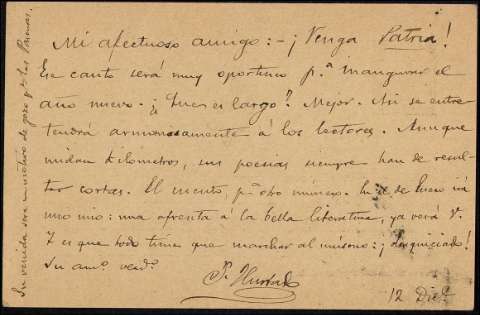 Mi afectuoso amigo: - ¡Venga Patria!
Ese canto será muy oportuno p.ª inaugurar el
año nuevo. ¿Que es largo? Mejor. Así se entre
tendrá armoniosamente á los lectores. Aunque
midan kilometros, sus poesías siempre han de resul-
tar cortas. El p.ª otro número. de Enero irá
uno mio: una afrenta á la bella literatura, ya verá V.
Y es que todo tiene que marchar al unísono: ¡desquiciado!
Su am.º verd.º
P. Hurtado
12 Dic.e
Su venida sera un motivo de gozo p.ª los